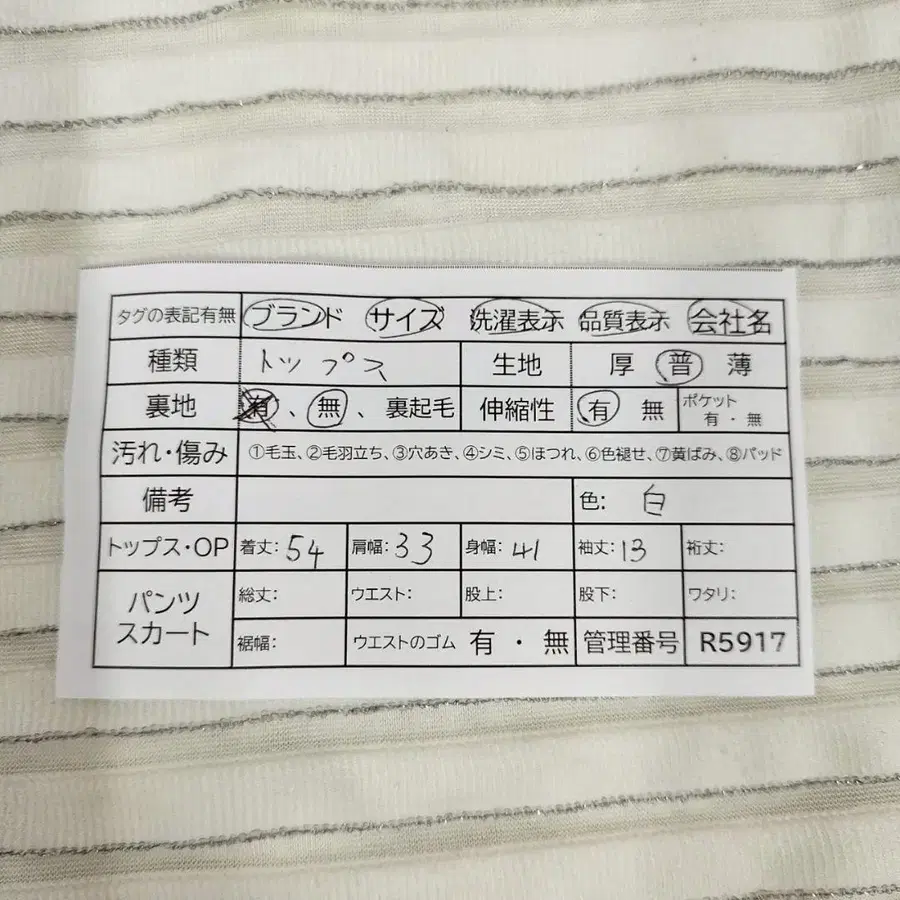 タグの表記有無 ブランド サイズ 洗濯表示 品質表示 会社名
種類 トップス 生地 厚 普 薄
裏地 有、無、裏起毛 伸縮性 有 無 ポケット 有・無
汚れ・傷み ①毛玉、②毛羽立ち、③穴あき、④シミ、⑤ほつれ、⑥色褪せ、⑦黄ばみ、⑧パッド
備考 色: 白
トップス・OP 着丈: 54 肩幅: 33 身幅: 41 袖丈: 13 裄丈:
パンツ スカート 総丈: ウエスト: 股上: 股下: ワタリ:
裾幅: ウエストのゴム 有・無 管理番号 R5917